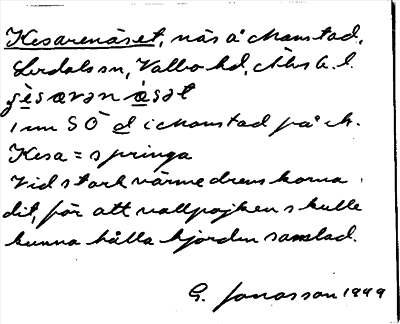 Kesarenäset, näs å Manstad,
Lerdals sn, Valbo hd, Älvs b. l.
çè̀sarən æ̀sət
1 mm SÖ d i Manstad på ek.
Kesa = springa
Vid stark värme drevs korna
dit, för att vallpojken skulle
kunna hålla hjorden samlad.
G. Jonasson 1999